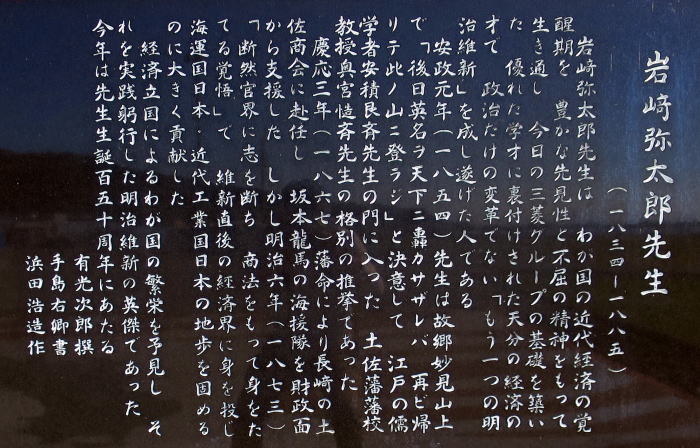 岩﨑弥太郎先生
（一八三四ー一八八五）
岩﨑弥太郎先生は わが国の近代経済の覚
醒期を 豊かな先見性と不屈の精神をもって
生き通し 今日の三菱グループの基礎を築い
た 優れた学才に裏付けされた天分の経済の
才で 政治だけの変革でない「もう一つの明
治維新」を成し遂げた人である
安政元年（一八五四）先生は故郷妙見山上
で「後日英名ヲ天下ニ轟カサザレバ 再ビ帰
リテ此ノ山ニ登ラジ」と決意して 江戸の儒
学者安積艮斉先生の門に入った 土佐藩藩校
教授奥宮慥斉先生の格別の推挙であった
慶応三年（一八六七）藩命により長崎の土
佐商会に赴任し 坂本龍馬の海援隊を財政面
から支援した しかし明治六年（一八七三）
「断然官界に志を断ち 商法をもって身をた
てる覚悟」で 維新直後の経済界に身を投じ
海運国日本・近代工業国日本の地歩を固める
のに大きく貢献した
経済立国によるわが国の繁栄を予見し そ
れを実践躬行した明治維新の英傑であった
今年は先生生誕百五十周年にあたる
有光次郎撰
手島右卿書
浜田浩造作